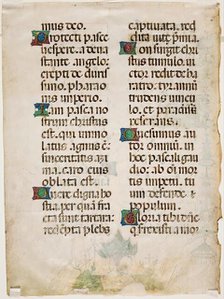 mus deo.
Protecti pasce
uespere. a deua
stante angelo:
erepti de duris
simo. pharao
nis imperio.
Iam pasca no
strum christus
est. qui immo
latus agnus e:
sinceritatis azi
ma. caro eius
oblata est.
O uere digna ho
stia. per quam fra
cta sunt tartara:
redempta plebs
captiuata. red
dita uite premia.
Con surgit chri
stus tumulo. ui
ctor redit de ba
ratro: tyrannum
trudens uincu
lo. et paradisum
reserans.
Quesumus au
tor omnium. in
hoc pascali gau
dio: ab omni mor
tis impetu. tu
um defende
populum.
Gloria tibi domine
qui surrexisti a mor